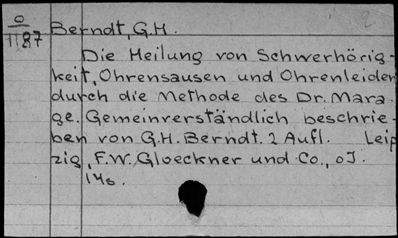 O
II 87
Berndt, G.H.
Die Heilung von Schwerhörig-
keit, Ohrensausen und Ohrenleiden
durch die Methode des Dr. Mara-
ge. Gemeinverständlich beschrie-
ben von G.H. Berndt. 2 Aufl. Leip
zig, F.W. Gloeckner und Co., oJ.
14s.